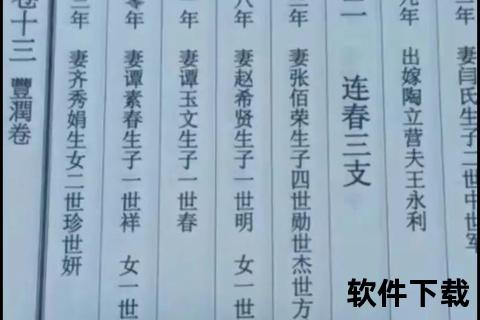 二年 妻闫氏生子二世中世军
九年 出嫁陶立营夫王永利
二 连春三支
年 妻张佰荣生子四世勋世杰世方
八年 妻赵希贤生子一世明 女一世
年 妻谭玉文生子一世春
零年 妻谭素春生子一世祥 女一世
二年 妻齐秀娟生女二世珍世妍
卷十三 豐潤卷
软件下载